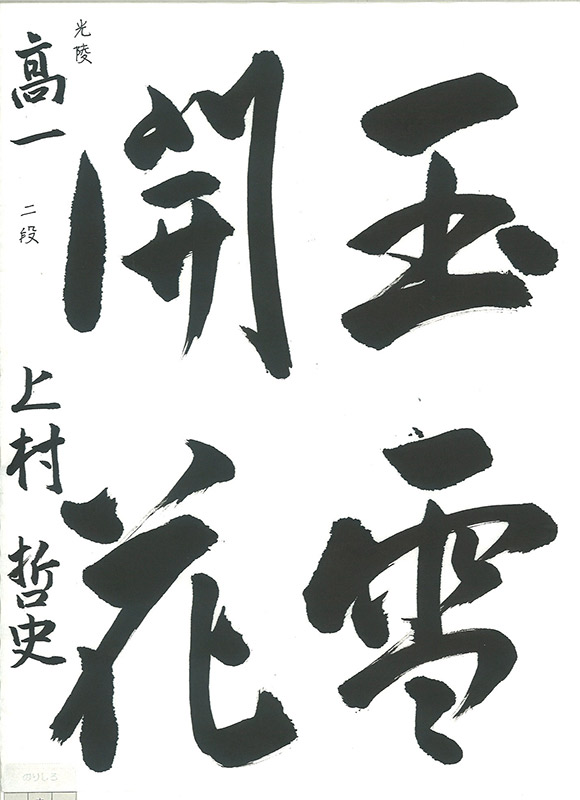 玉雪
開花
光陵
高一 二段 上村 哲史
のりしろ